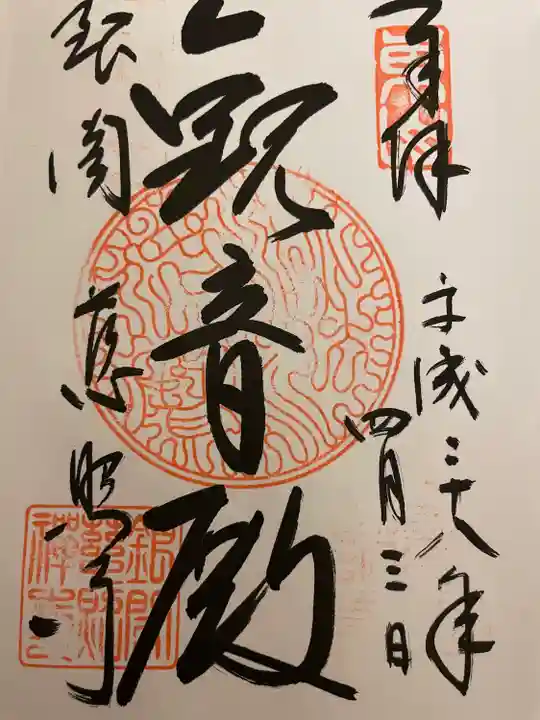 奉拝
平成三十八年
四月三日
観音殿
銀閣
慈照寺
銀閣
慈照
禅寺